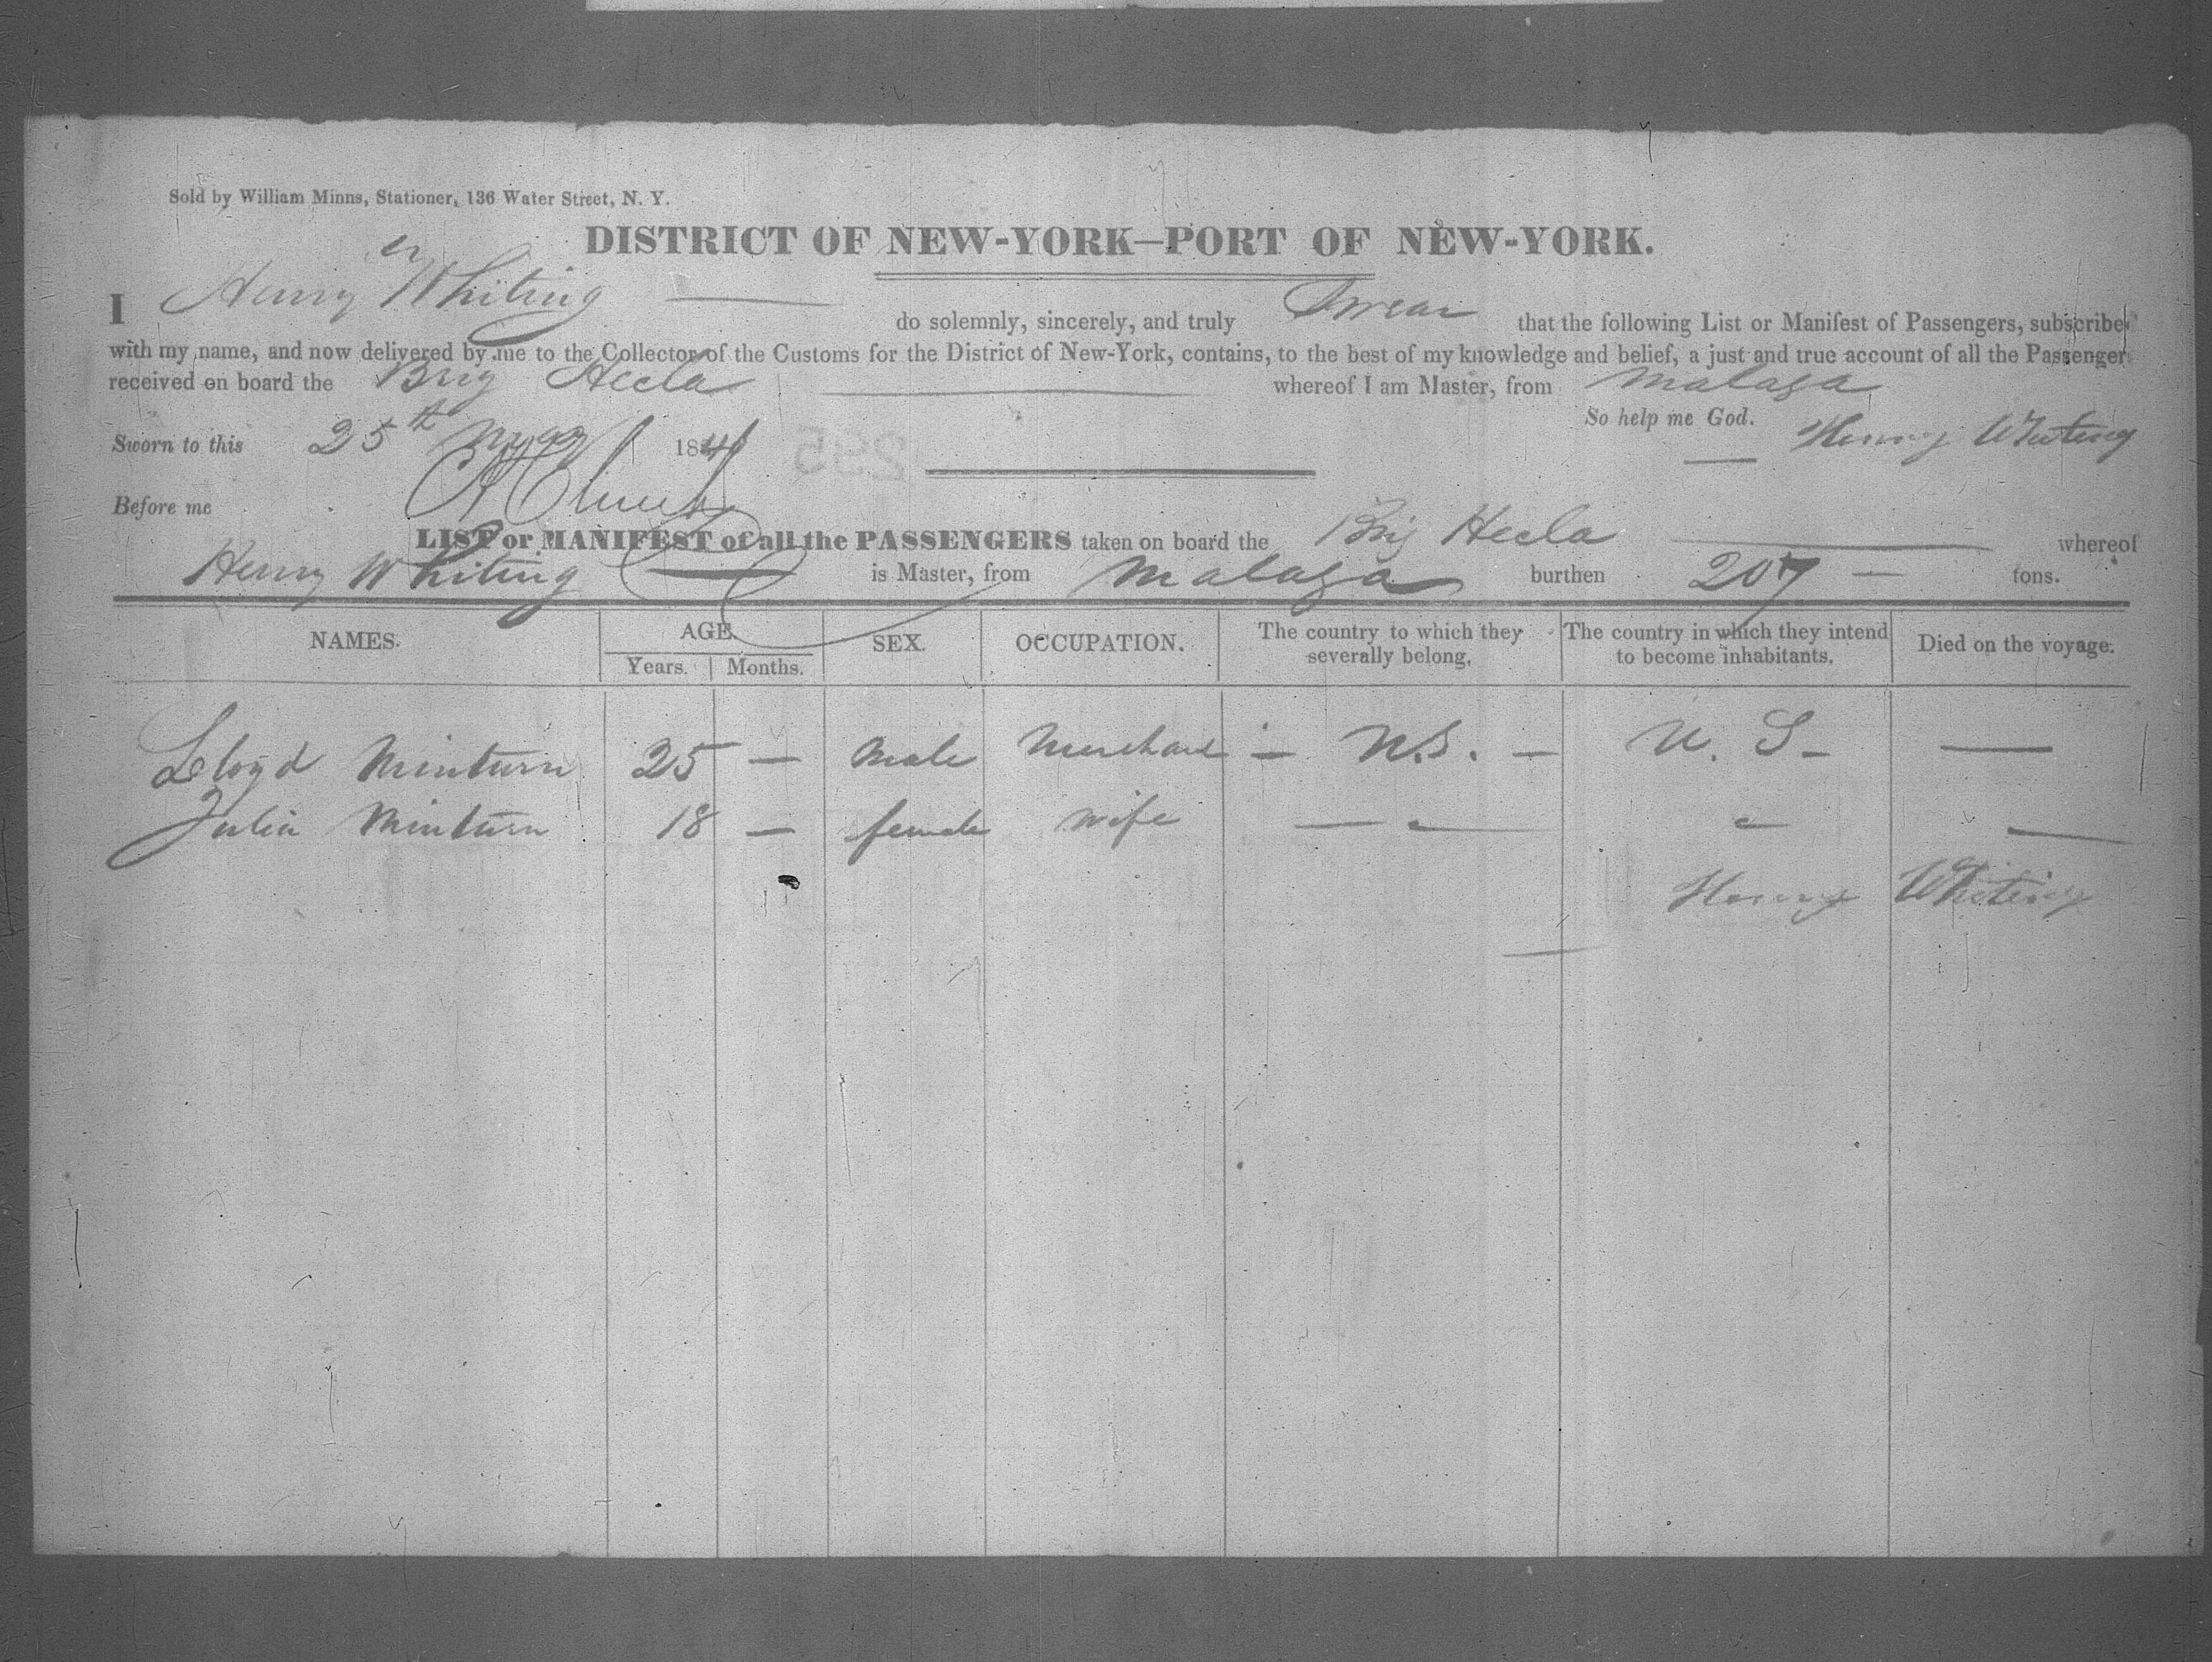 Sold by William Minns, Stationer, 136 Water Street, N. Y.
DISTRICT OF NEW-YORK—PORT OF NEW-YORK.
I Henry Whiting — do solemnly, sincerely, and truly Swear that the following List or Manifest of Passengers, subscribe
with my name, and now delivered by me to the Collector of the Customs for the District of New-York, contains, to the best of my knowledge and belief, a just and true account of all the Passenger
received on board the Brig Hecla — whereof I am Master, from Malaga
So help me God.
Sworn to this 25th May 184
Henry Whiting
Before me
LIST or MANIFEST of all the PASSENGERS taken on board the Brig Hecla — whereof
Henry Whiting — is Master, from Malaga burthen 207 — tons.
NAMES. AGE. SEX. OCCUPATION. The country to which they severally belong. The country in which they intend to become inhabitants. Died on the voyage.
Years. Months.
Lloyd Minturn 25 — Male Merchant — U.S. — U. S — —
Julia Minturn 18 — female wife — " — " —
Henry Whiting